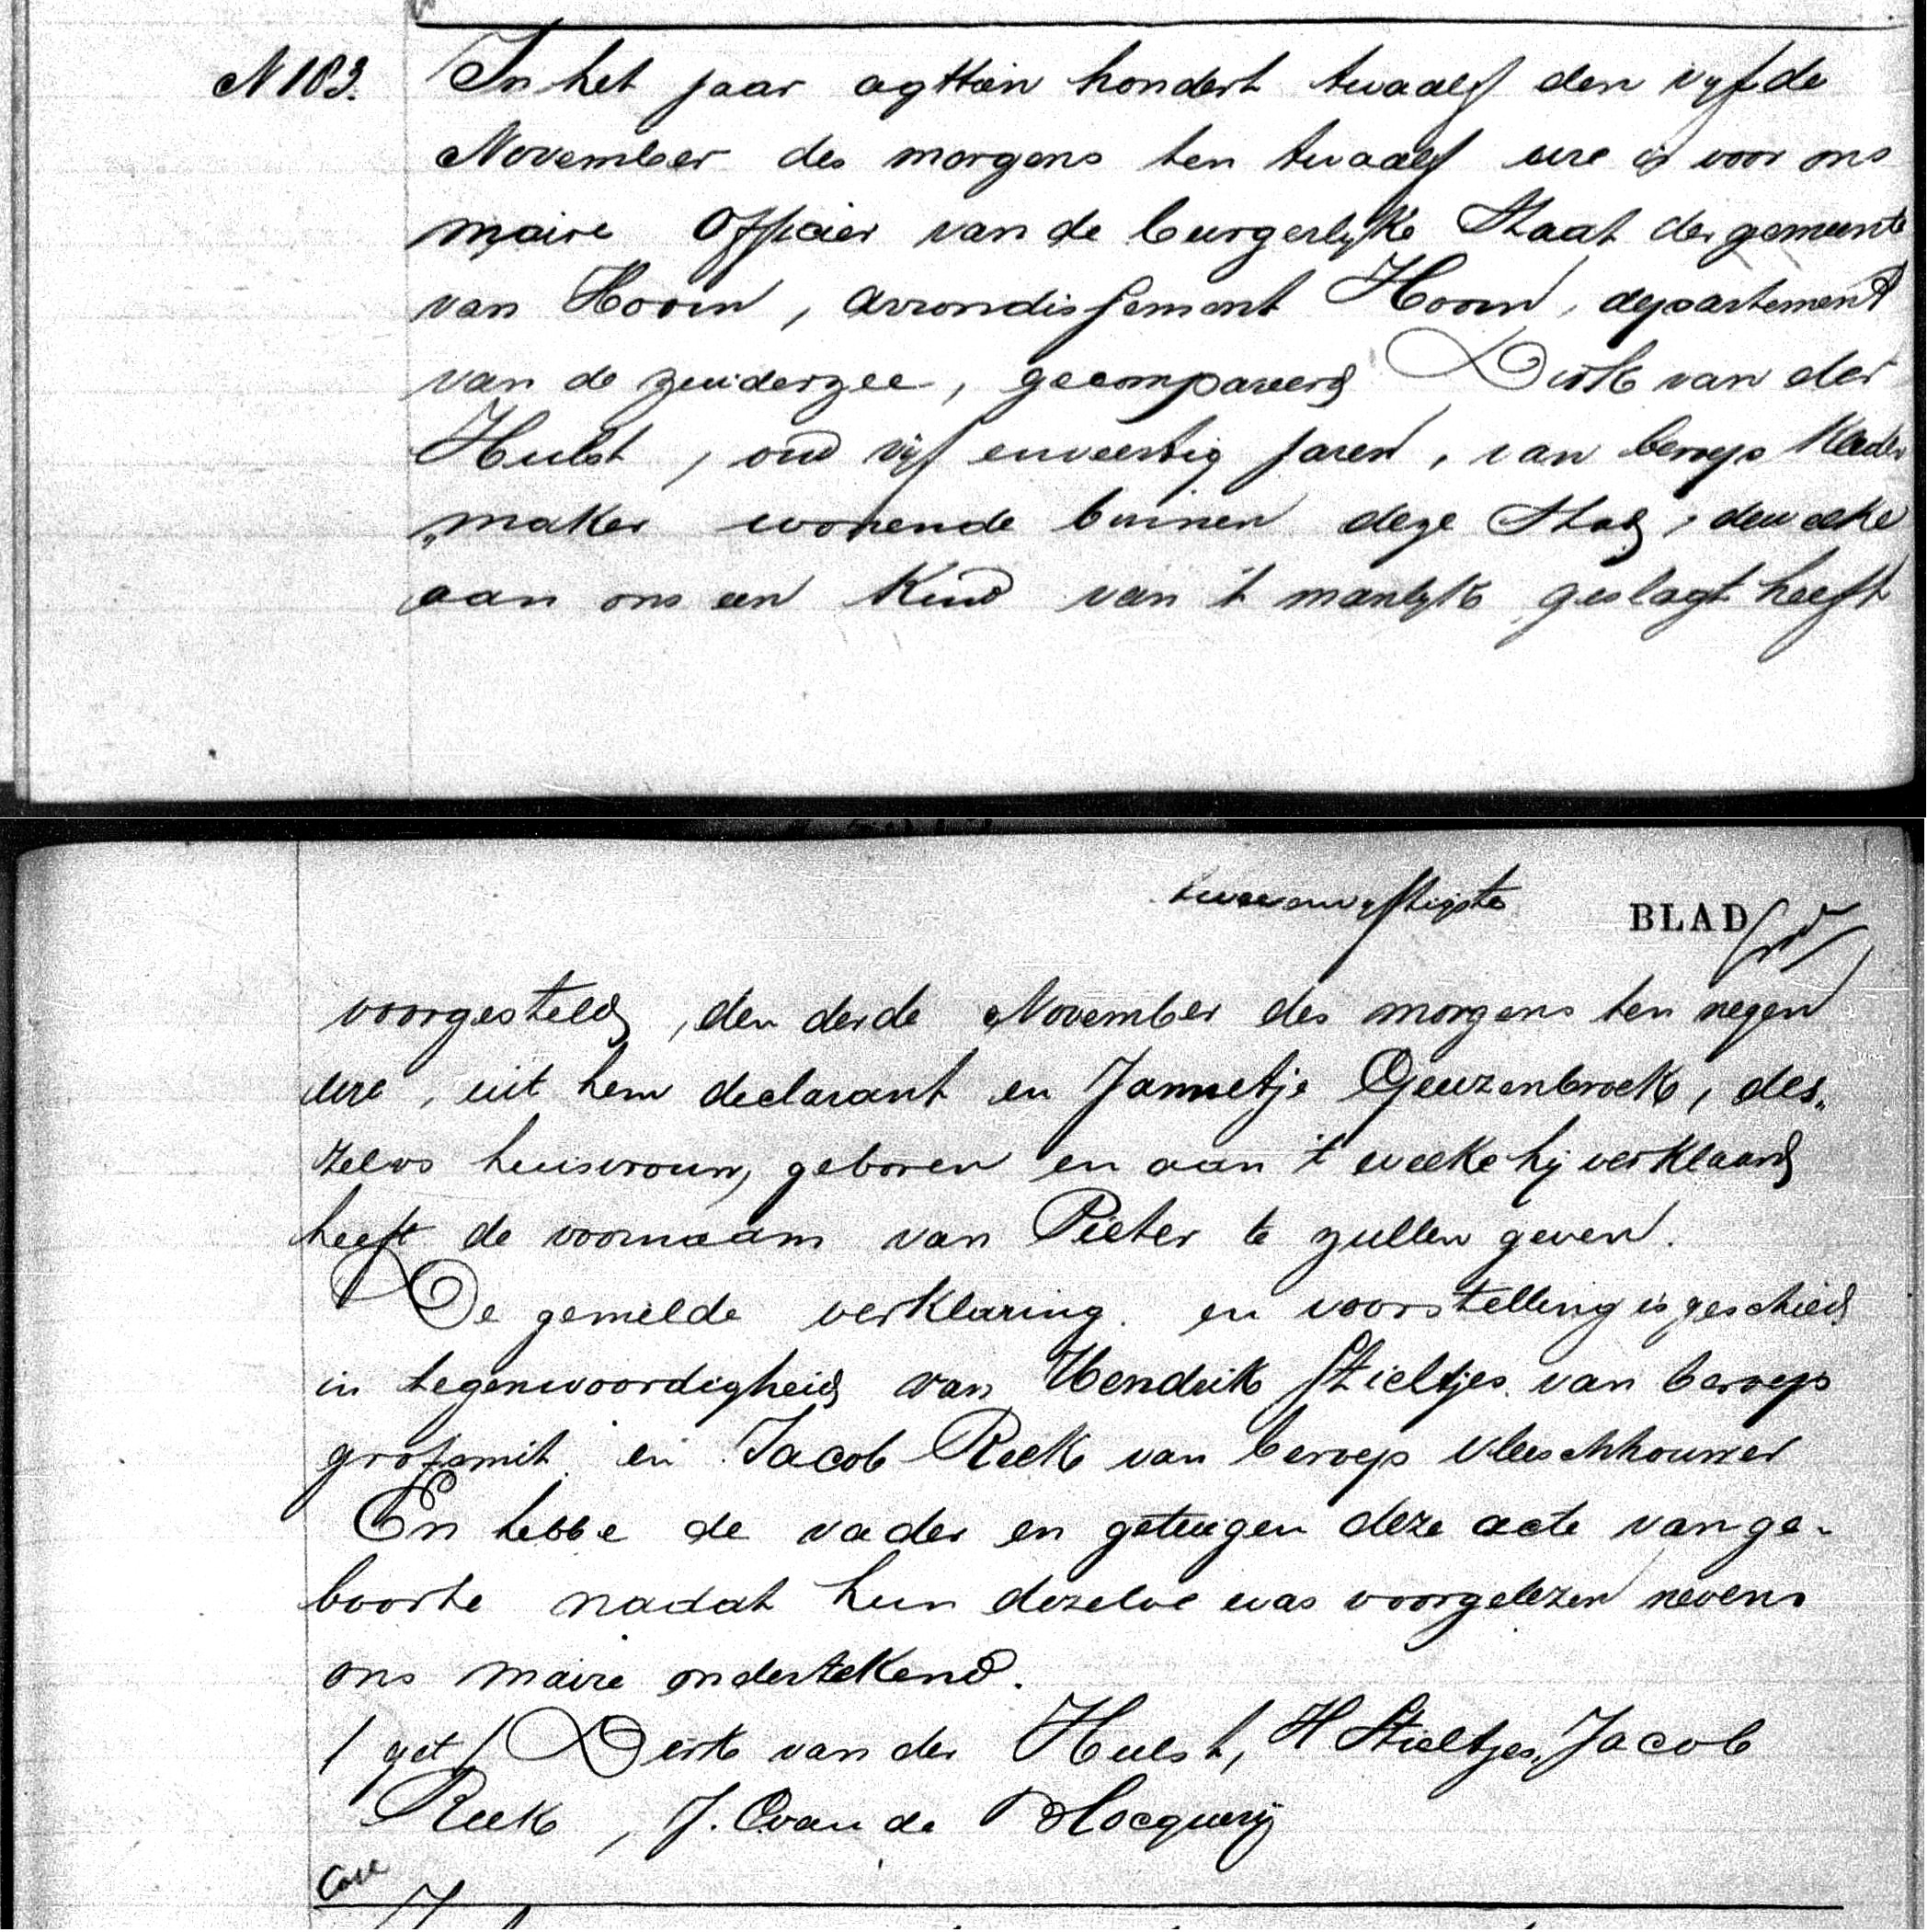 N 183.
In het jaar agttien hondert twaalf den vyfde
November des morgens ten twaalf ure is voor ons
maire Officier van de burgerlyke Staat der gemeente
van Hoorn, arrondissement Hoorn, departement
van de zuiderzee, gecompareerd Dirk van der
Hulst, oud vijf en veertig jaren, van beroep kleder
„maker wonende binnen deze Stad, dewelke
aan ons een kind van 't manlyk geslagt heeft
tweeenvyftigste BLAD
voorgesteld, den derde November des morgens ten negen
ure, uit hem declarant en Jannetje Geuzenbroek, des„
zelvs huisvrouw, geboren en aan 't welke hij verklaard
heeft de voornaam van Pieter te zullen geven.
De gemelde verklaring en voorstelling is geschied
in tegenwoordigheid van Hendrik Stieltjes van beroep
grofsmit en Jacob Reek van beroep vleeschhouwer
En hebbe de vader en getuigen deze acte van ge-
boorte nadat hun dezelve was voorgelezen nevens
ons maire ondertekend.
/ get / Derk van der Hulst, H Stieltjes, Jacob
Reek, J. C van de Blocquerij